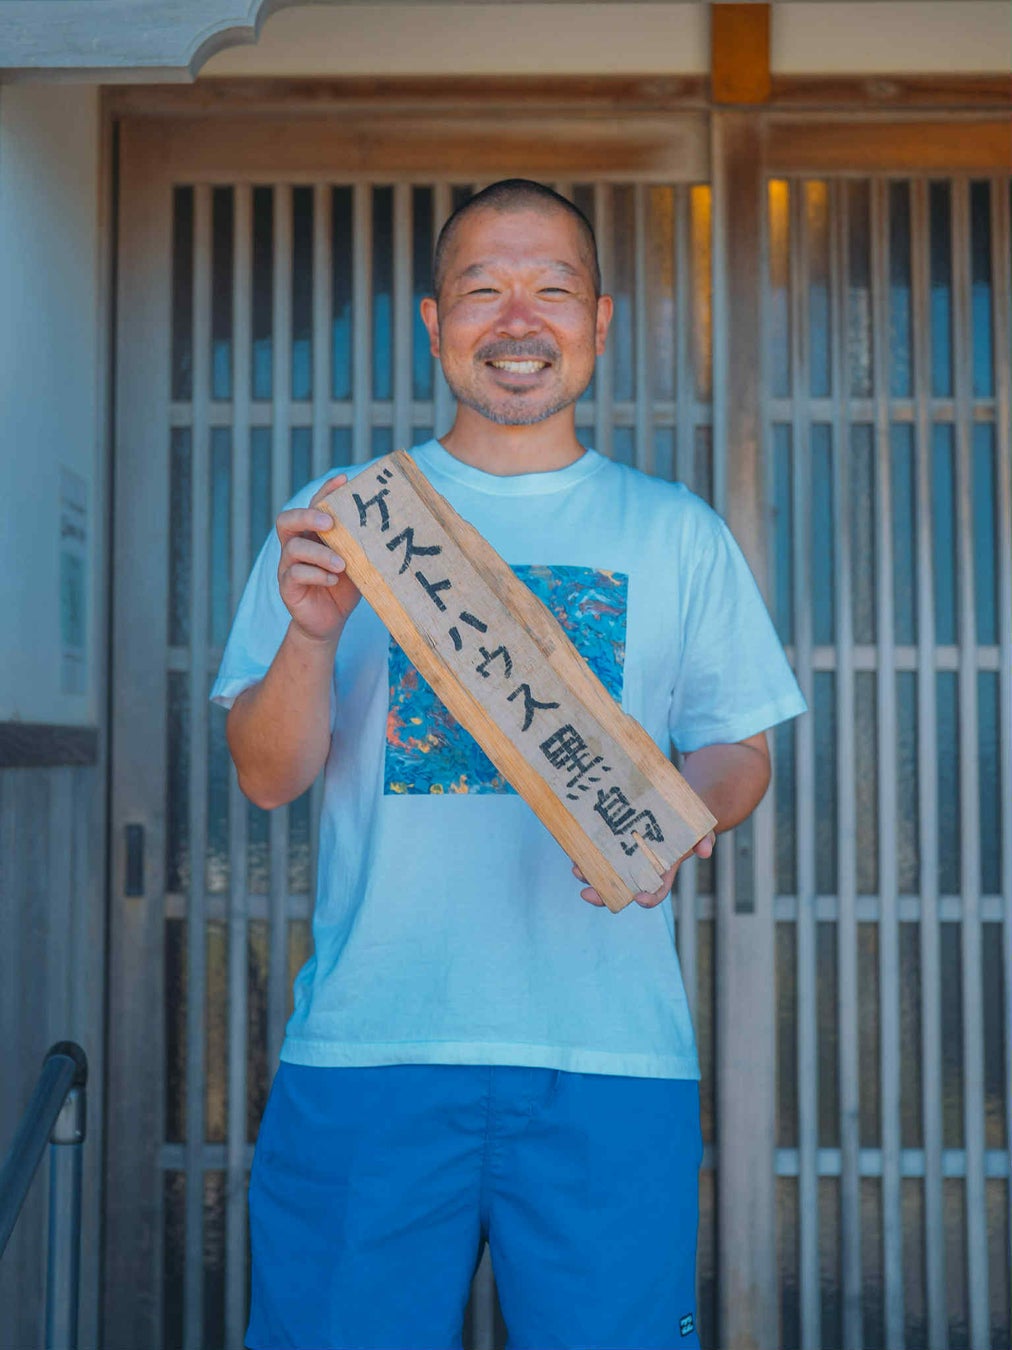 ゲストハウス黒島